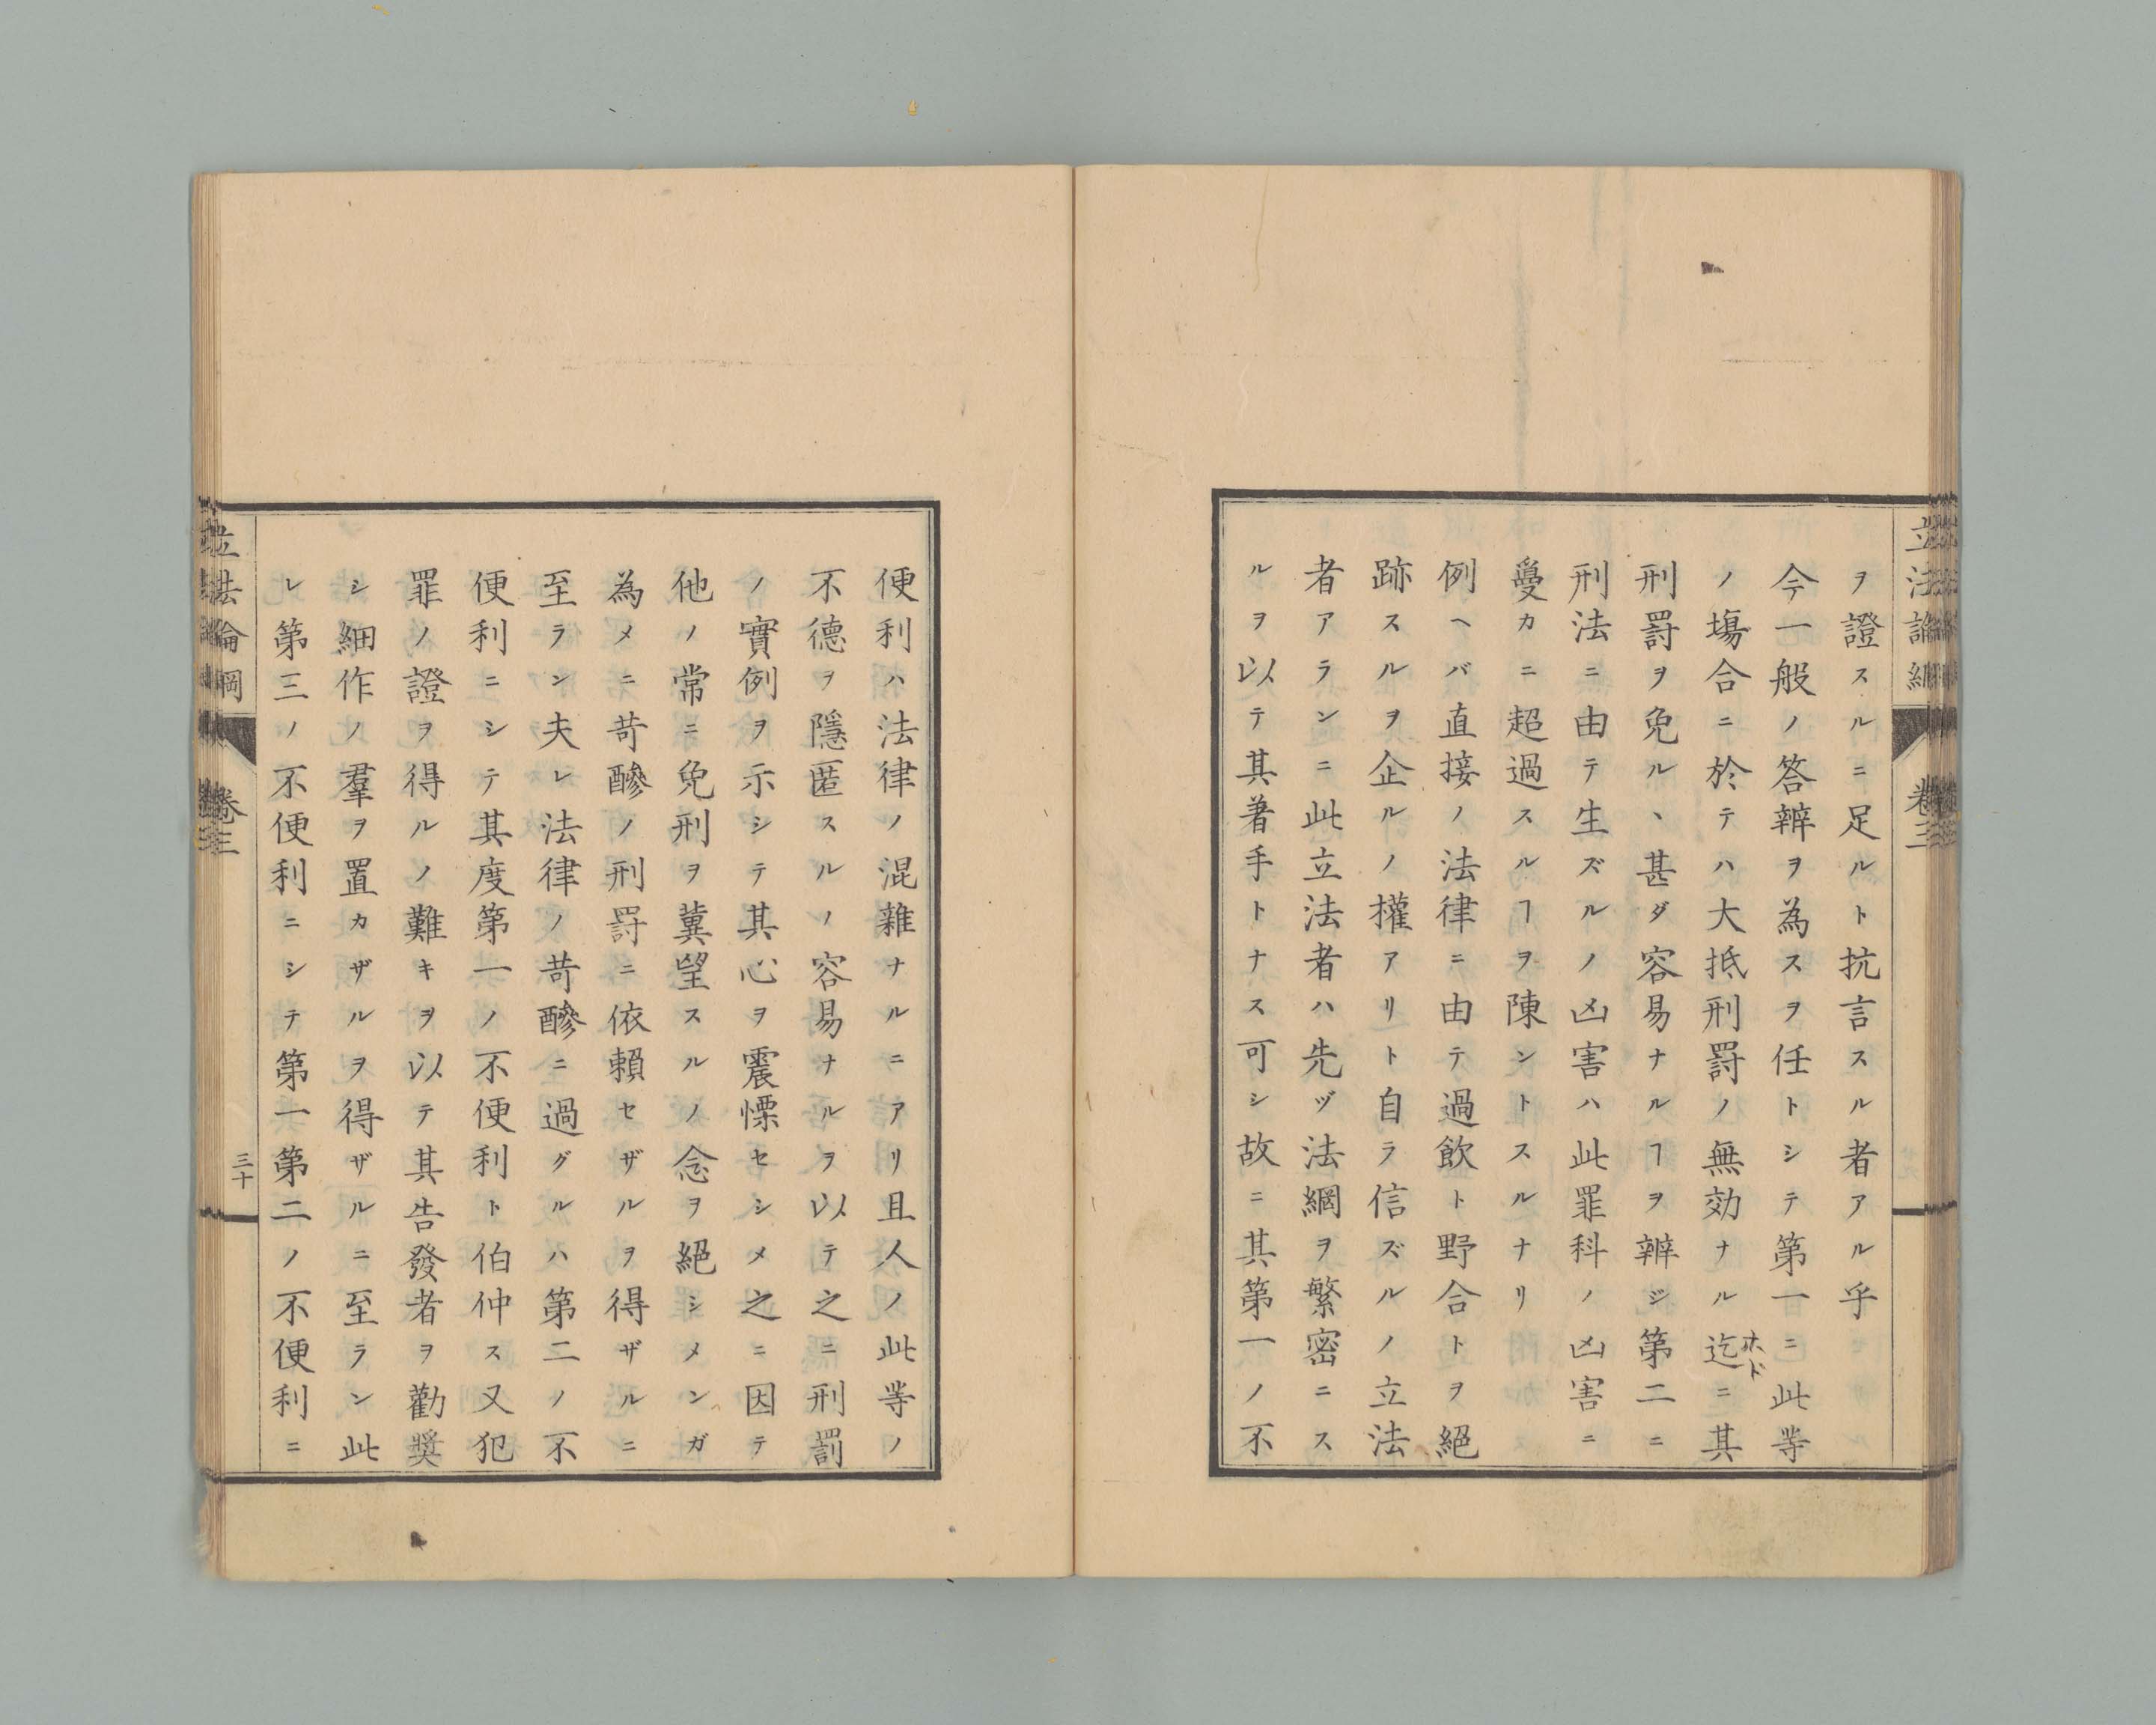 立法論綱 卷三
ヲ證スルニ足ルト抗言スル者アル乎
今一般ノ答辨ヲ為スヲ任トシテ第一ニ此等
ノ塲合ニ於テハ大抵刑罰ノ無効ナル迄ニ其
ホド
刑罰ヲ免ルヽ甚ダ容易ナルヿヲ辨ジ第二ニ
刑法ニ由テ生ズルノ凶害ハ此罪科ノ凶害ニ
敻カニ超過スルヿヲ陳ントスルナリ
例ヘバ直接ノ法律ニ由テ過飲ト野合トヲ絕
跡スルヲ企ルノ權アリト自ラ信ズルノ立法
者アランニ此立法者ハ先ヅ法綱ヲ繁密ニス
ルヲ以テ其著手トナス可シ故ニ其第一ノ不
便利ハ法律ノ混雜ナルニアリ且人ノ此等ノ
不德ヲ隱匿スルノ容易ナルヲ以テ之ニ刑罰
ノ實例ヲ示シテ其心ヲ震慄セシメ之ニ因テ
他ノ常ニ免刑ヲ冀望スルノ念ヲ絕シメンガ
為メニ苛酷ノ刑罰ニ依賴セザルヲ得ザルニ
至ラン夫レ法律ノ苛酷ニ過グルハ第二ノ不
便利ニシテ其度第一ノ不便利ト伯仲ス又犯
罪ノ證ヲ得ルノ難キヲ以テ其告發者ヲ勸獎
シ細作ノ羣ヲ置カザルヲ得ザルニ至ラン此
レ第三ノ不便利ニシテ第一第二ノ不便利ニ
立法論綱 卷三
三十